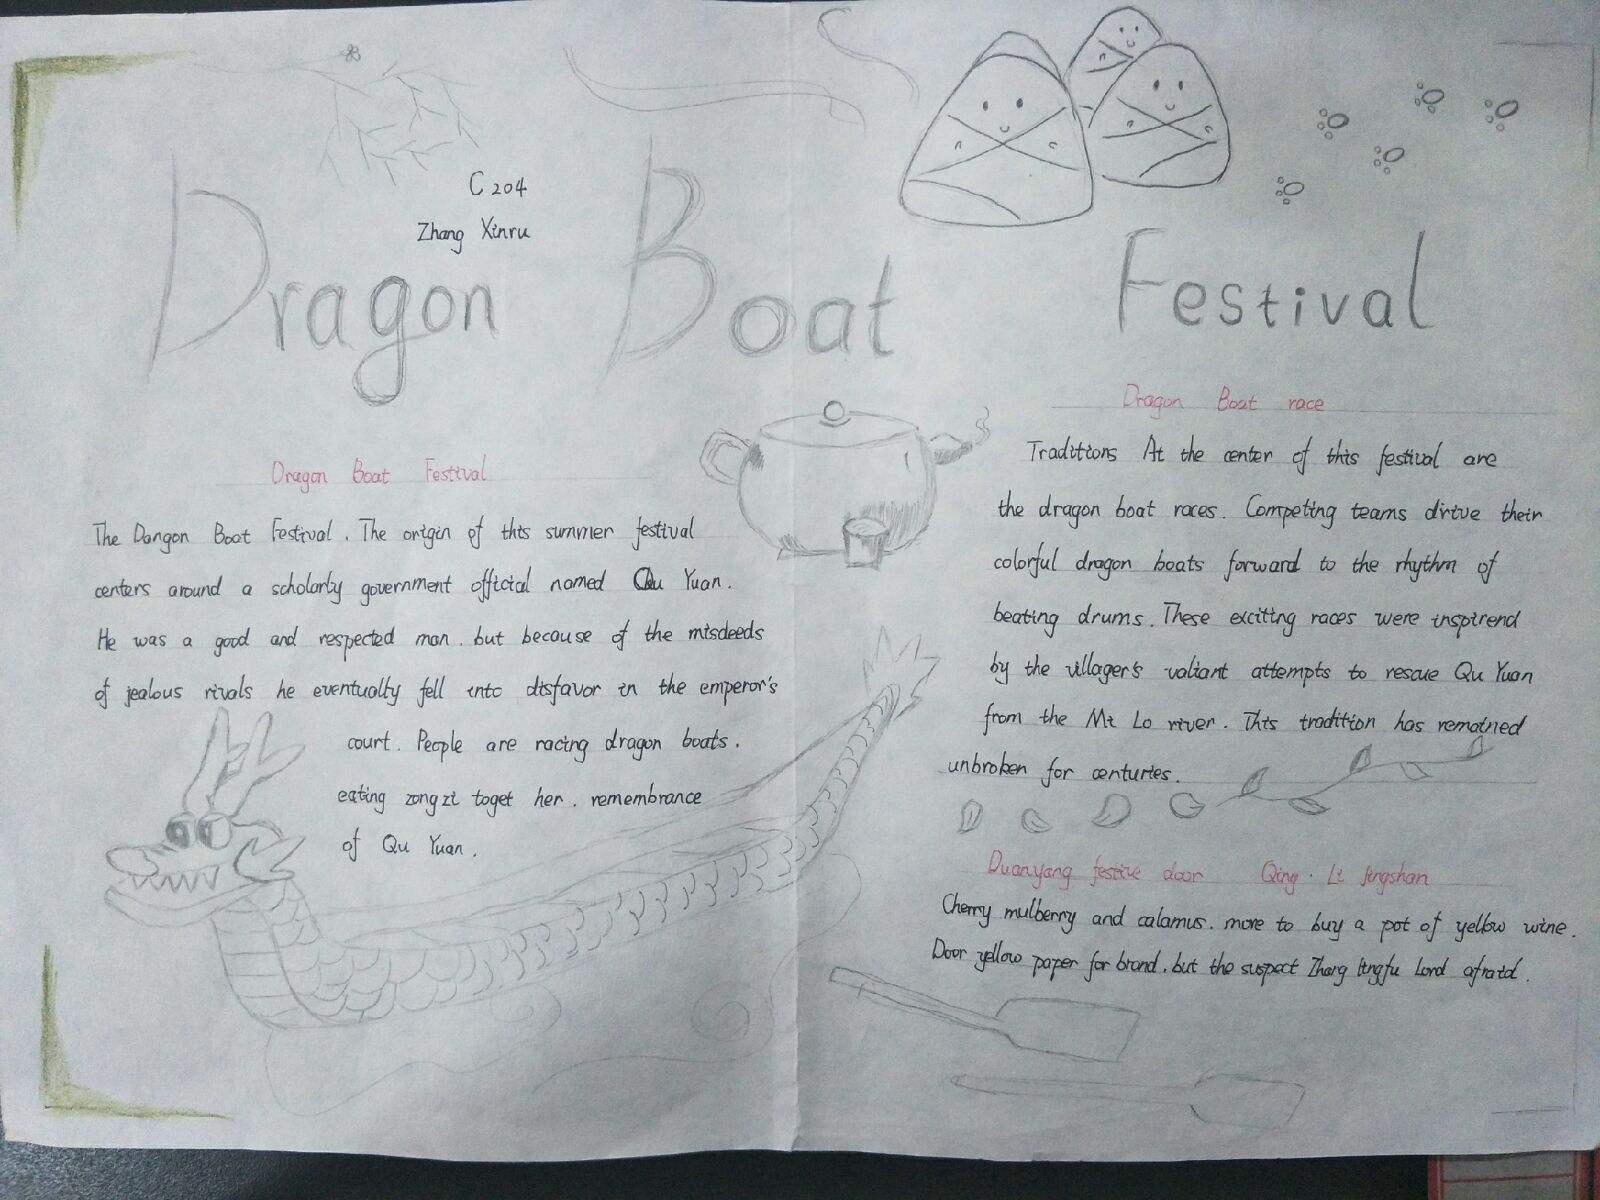 C 204
Zhang Xinru
Dragon Boat Festival
Dragon Boat Festival
The Dangon Boat Festival. The origin of this summer festival
centers around a scholarly government official named Qu Yuan.
He was a good and respected man. but because of the misdeeds
of jealous rivals he eventually fell into disfavor in the emperor's
court. People are racing dragon boats.
eating zongzi toget her. remembrance
of Qu Yuan.
Dragon Boat race
Traditions At the center of this festival are
the dragon boat races. Competing teams drive their
colorful dragon boats forward to the rhythm of
beating drums. These exciting races were inspirend
by the villager's valiant attempts to rescue Qu Yuan
from the Mi Lo river. This tradition has remained
unbroken for centuries.
Duanyang festive door Qing · Li fengshan
Cherry mulberry and calamus. more to buy a pot of yellow wine.
Door yellow paper for brand. but the suspect Zhang lingfu Lord afraid.